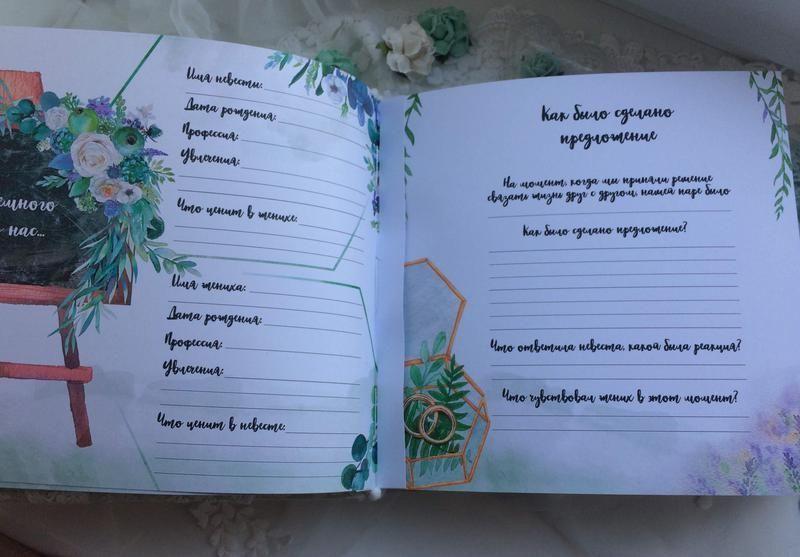 емного
нас...
Имя невесты:
Дата рождения:
Профессия:
Увлечения:
Что ценит в женихе:
Имя жениха:
Дата рождения:
Профессия:
Увлечения:
Что ценит в невесте:
Как было сделано
предложение
На момент, когда мы приняли решение
связать жизнь друг с другом, нашей паре было
Как было сделано предложение?
Что ответила невеста, какой была реакция?
Что чувствовал жених в этот момент?